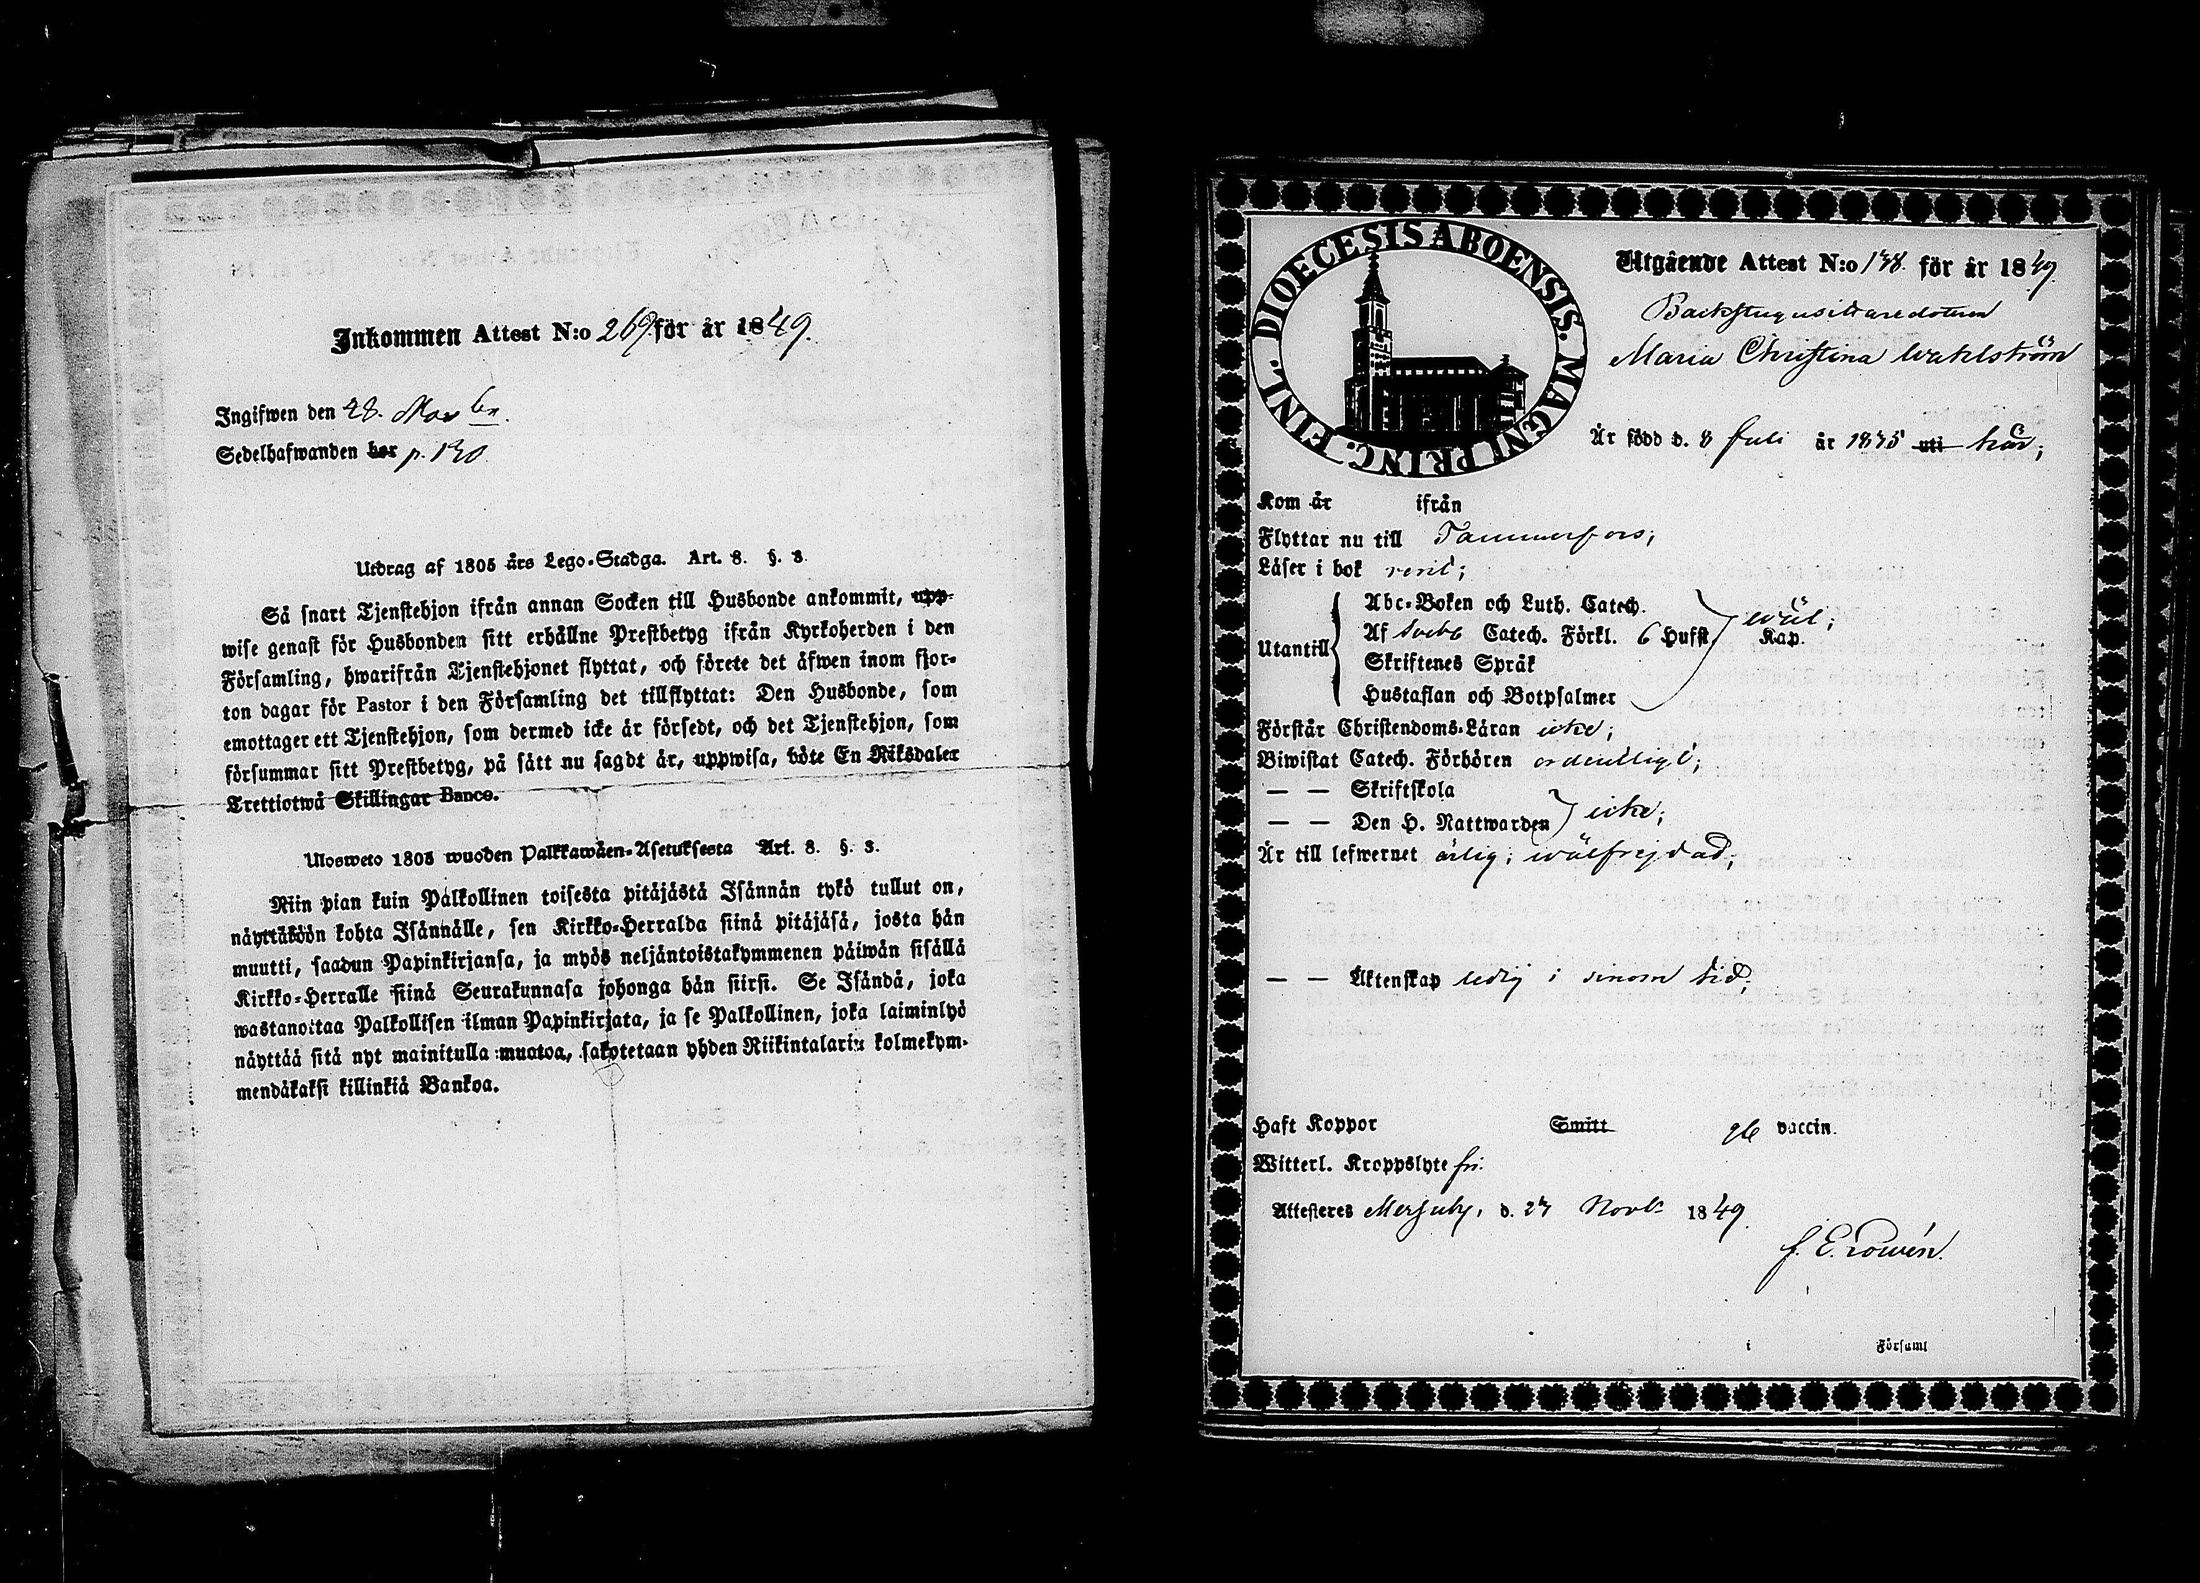 Inkommen Attest N:o 269 för år 1849.
Ingifwen den 28. Novbr.
Sedelhafwanden bor p. 130
Utdrag af 1805 års Lego-Stadga. Art. 8. §. 3.
Så snart Tjenstehjon ifrån annan Socken till Husbonde ankommit, upp-
wise genast för Husbonden sitt erhållne Prestbetyg ifrån Kyrkoherden i den
Församling, hwarifrån Tjenstehjonet flyttat, och förete det äfwen inom fjor-
ton dagar för Pastor i den Församling det tillflyttat: Den Husbonde, som
emottager ett Tjenstehjon, som dermed icke är försedt, och det Tjenstehjon, som
försummar sitt Prestbetyg, på sätt nu sagdt är, uppwisa, böte En Riksdaler
Trettiotwå Skillingar Banco.
Ulosweto 1805 wuoden Palkkawäen-Asetuksesta Art. 8. §. 3.
Niin pian kuin Palkollinen toisesta pitäjästä Isännän tykö tullut on,
näyttäköön kohta Isännälle, sen Kirkko-Herralda siinä pitäjäsä, josta hän
muutti, saadun Papinkirjansa, ja myös neljäntoistakymmenen päiwän sisällä
Kirkko-Herralle siinä Seurakunnasa johonga hän siirsi. Se Isändä, joka
wastanottaa Palkollisen ilman Papinkirjata, ja se Palkollinen, joka laiminlyö
näyttää sitä nyt mainitulla muotoa, sakotetaan yhden Riikintalarin kolmekym-
mendäkaksi killinkiä Bankoa.
DIOECESIS ABOENSIS. MAGNI PRINC. FINL.
Utgående Attest N:o 138. för år 1849.
Backstugusittaredotern
Maria Christina Wahlström
Är född d. 8 Juli år 1835 uti här;
Kom år ifrån
Flyttar nu till Tammerfors;
Läser i bok rent;
Utantill
Abc-Boken och Luth. Catech.
Af Sveb. Catech. Förkl. 6 Hufst Kap.
wäl;
Skriftenes Språk
Hustaflan och Botpsalmer
Förstår Christendoms-Läran icke;
Biwistat Catech. Förhören ordentligt;
— — Skriftskola
— — Den H. Nattwarden icke;
Är till lefwernet ärlig; wälfrejdad;
— — Äktenskap ledig i sinom tid;
Haft Koppor Smitt gb vaccin.
Witterl. Kroppslyte fri.
Attesteres d. 27 Novbr 1849.
Församl i